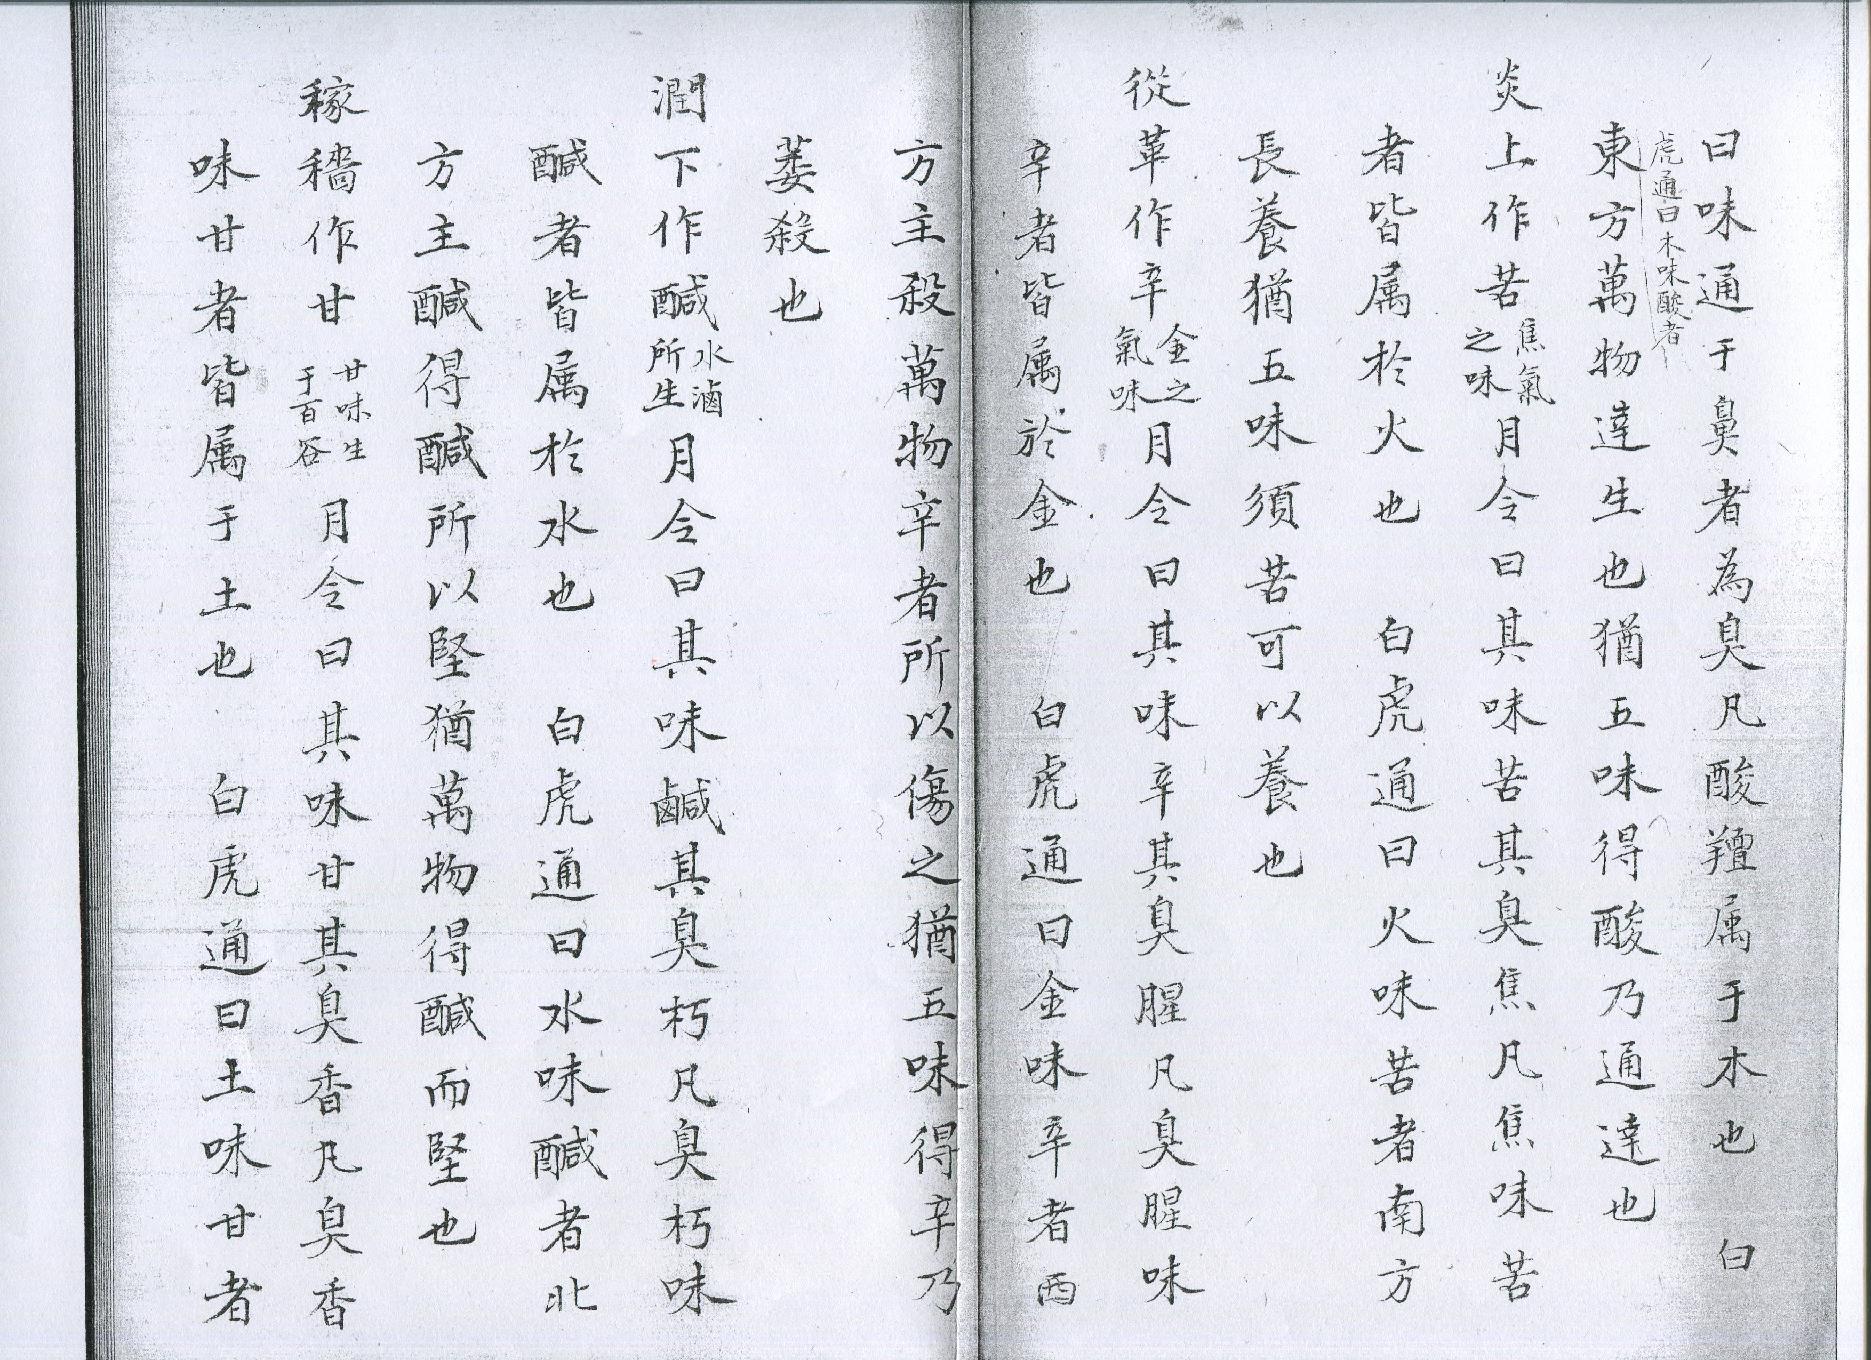 曰味通于鼻者為臭凡酸羶属于木也　白
虎通曰木味酸者
東方萬物達生也猶五味得酸乃通達也
炎上作苦焦氣之味月令曰其味苦其臭焦凡焦味苦
者皆属於火也　白虎通曰火味苦者南方
長養猶五味須苦可以養也
從革作辛金之氣味月令曰其味辛其臭腥凡臭腥味
辛者皆属於金也　白虎通曰金味辛者西
方主殺萬物辛者所以傷之猶五味得辛乃
萎殺也
潤下作醎水滷所生月令曰其味鹹其臭朽凡臭朽味
醎者皆属於水也　白虎通曰水味醎者北
方主醎得醎所以堅猶萬物得醎而堅也
稼穡作甘甘味生于百谷月令曰其味甘其臭香凡臭香
味甘者皆属于土也　白虎通曰土味甘者